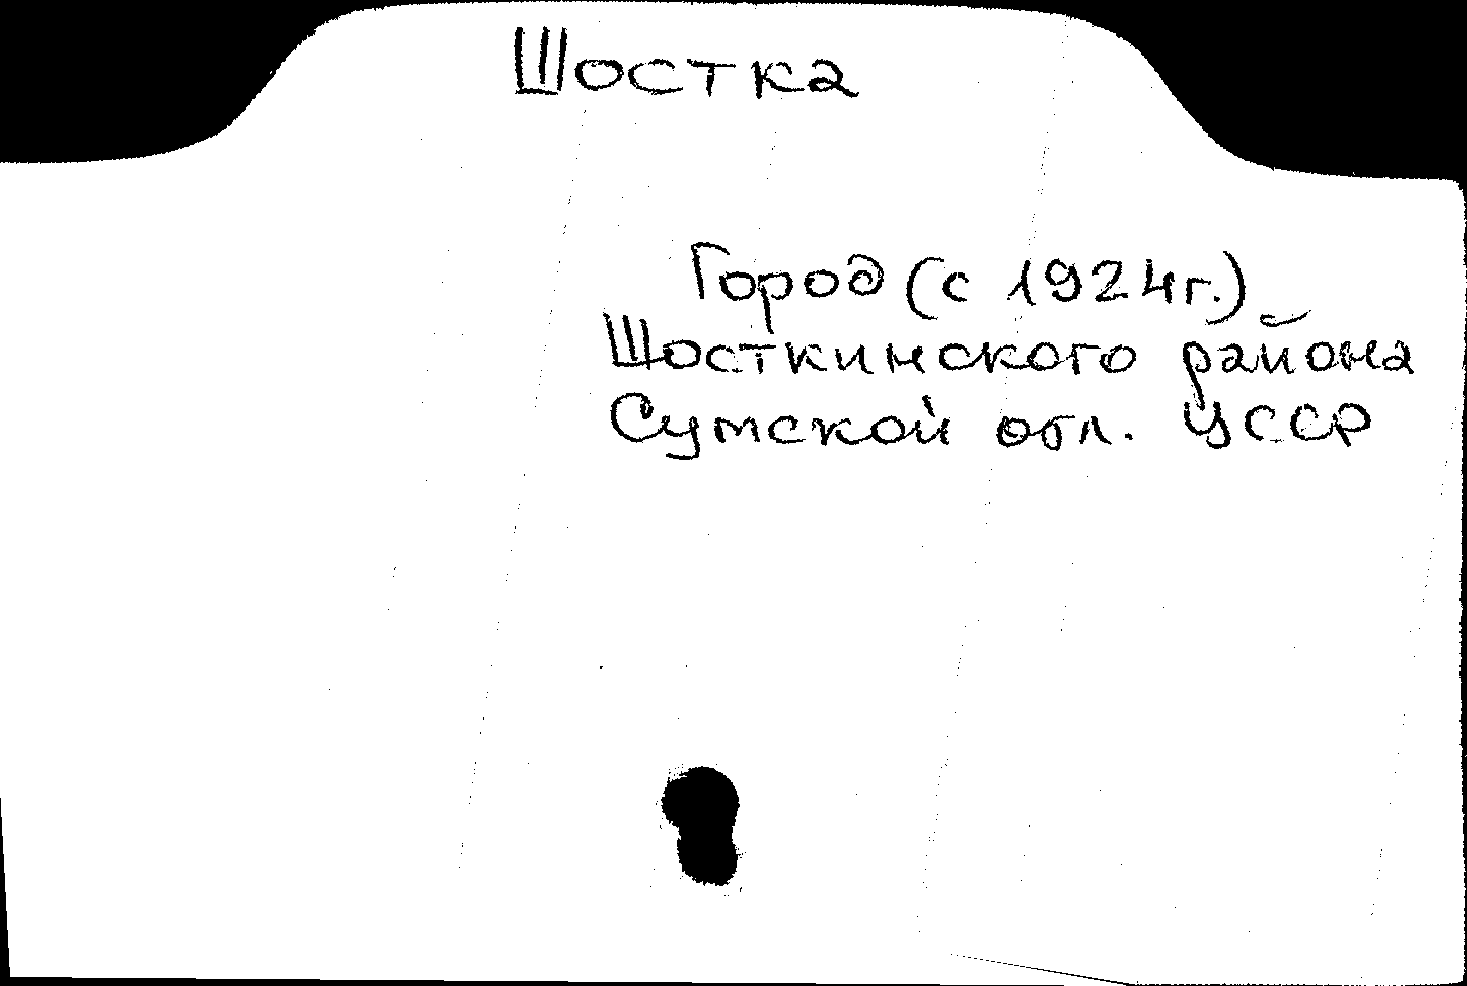 Шостка
Город (с 1924г.)
Шосткинского района
Сумской обл. УССР